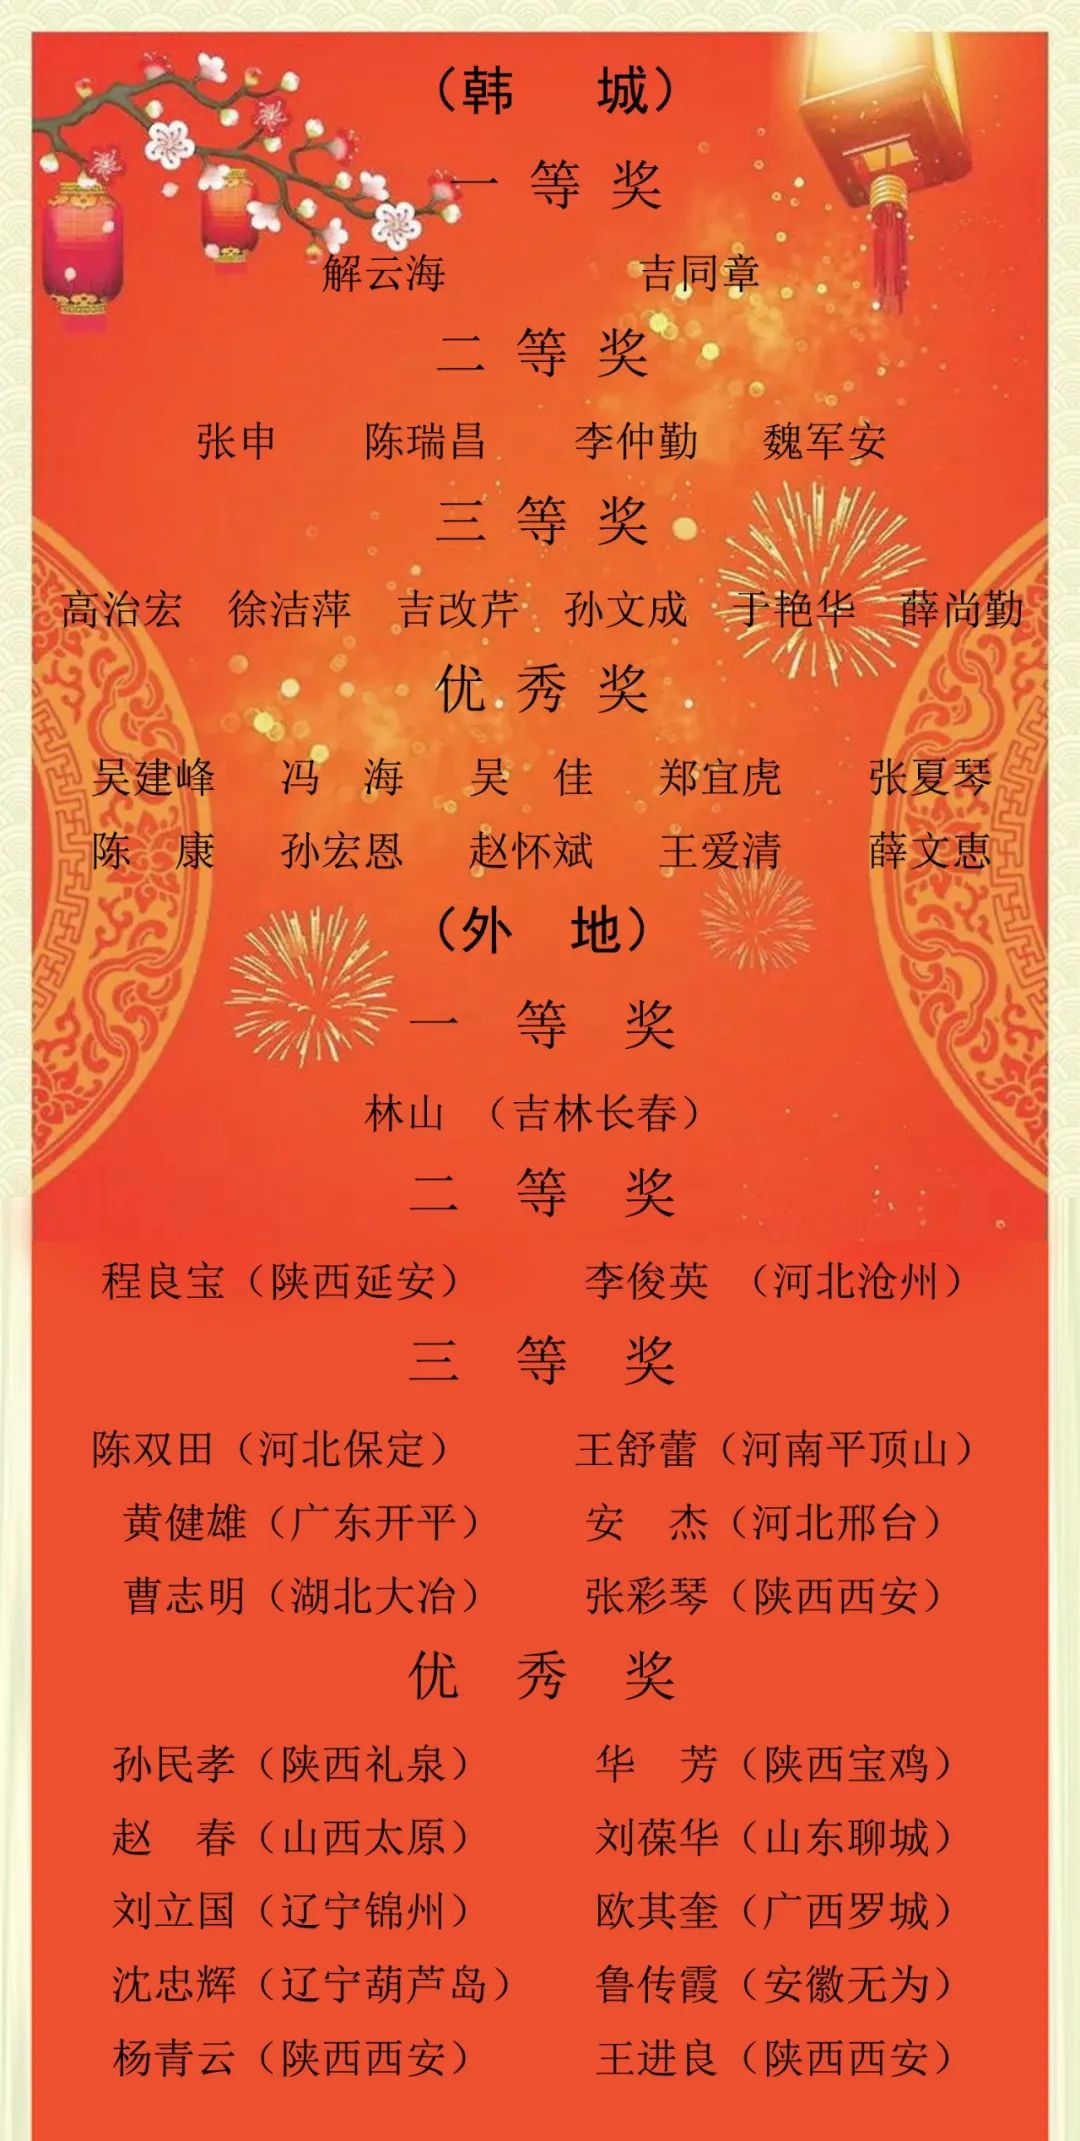 （韩 城）
一 等 奖
解云海 吉同章
二 等 奖
张申 陈瑞昌 李仲勤 魏军安
三 等 奖
高治宏 徐洁萍 吉改芹 孙文成 于艳华 薛尚勤
优 秀 奖
吴建峰 冯 海 吴 佳 郑宜虎 张夏琴
陈 康 孙宏恩 赵怀斌 王爱清 薛文恵
（外 地）
一 等 奖
林山 （吉林长春）
二 等 奖
程良宝（陕西延安） 李俊英 （河北沧州）
三 等 奖
陈双田（河北保定） 王舒蕾（河南平顶山）
黄健雄（广东开平） 安 杰（河北邢台）
曹志明（湖北大冶） 张彩琴（陕西西安）
优 秀 奖
孙民孝（陕西礼泉） 华 芳（陕西宝鸡）
赵 春（山西太原） 刘葆华（山东聊城）
刘立国（辽宁锦州） 欧其奎（广西罗城）
沈忠辉（辽宁葫芦岛） 鲁传霞（安徽无为）
杨青云（陕西西安） 王进良（陕西西安）